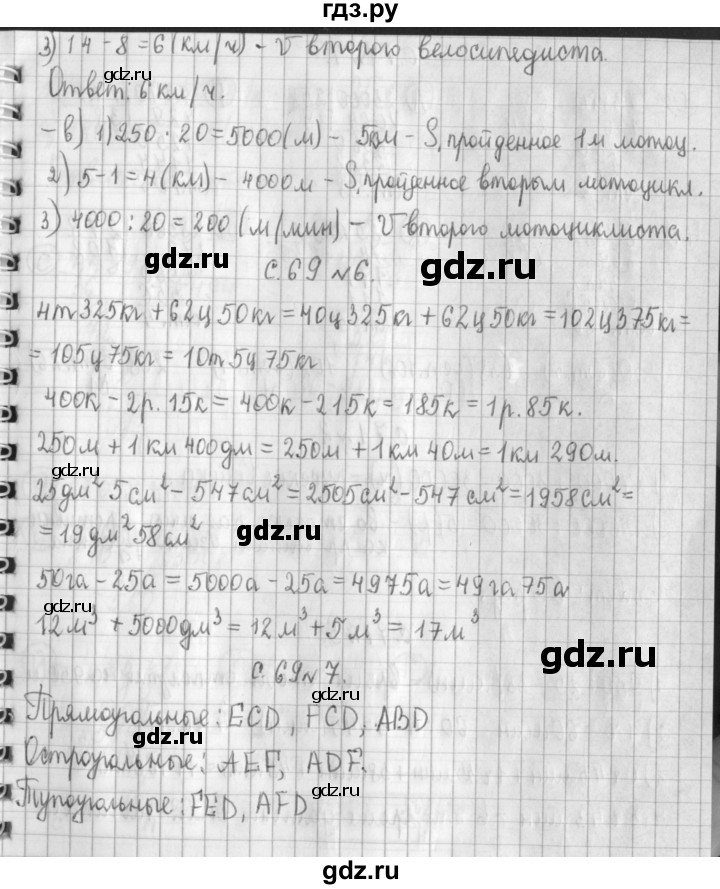 гдз.ру
3) 14 - 8 = 6 (км/ч) - V второго велосипедиста.
gdz.ru
Ответ: 6 км/ч.
- в) 1) 250 · 20 = 5000 (м) - 5км - S, пройденное 1м мотоц.
2) 5 - 1 = 4 (км) - 4000м - S, пройденное вторым мотоцикл.
gdz.ru
3) 4000 : 20 = 200 (м/мин) - V второго мотоциклиста.
gdz.ru
gdz.ru
С. 69 №6.
4т 325кг + 62ц 50кг = 40ц 325кг + 62ц 50кг = 102ц 375кг =
= 105ц 75кг = 10т 5ц 75кг
gdz.ru
400к - 2р. 15к = 400к - 215к = 185к = 1р. 85к.
250м + 1км 400дм = 250м + 1км 40м = 1км 290м.
gdz.ru
25дм² 5см² - 547см² = 2505см² - 547см² = 1958см² =
= 19дм² 58см²
gdz.ru
50га - 25а = 5000а - 25а = 4975а = 49га 75а
gdz.ru
12м³ + 5000дм³ = 12м³ + 5м³ = 17м³
gdz.ru
С. 69 №7.
gdz.ru
Прямоугольные: ECD, FCD, ABD
gdz.ru
Остроугольные: AEF, ADF.
gdz.ru
Тупоугольные: FED, AFD
gdz.ru